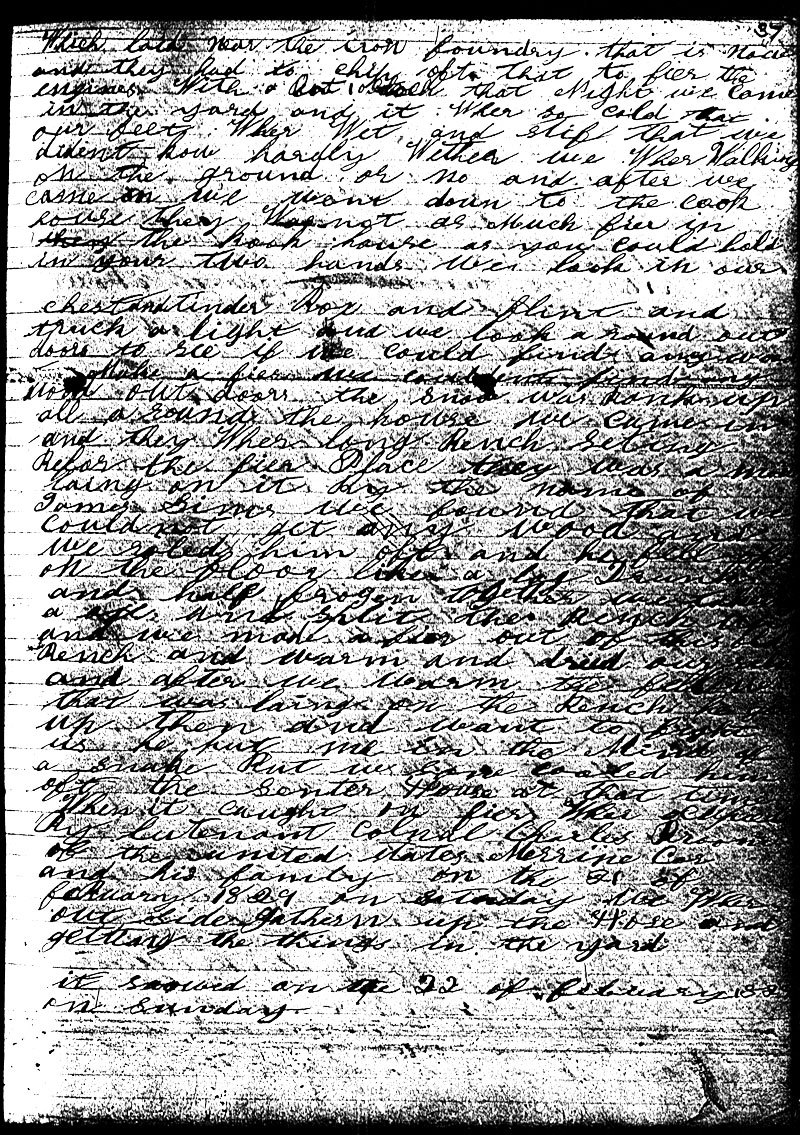 37
Which laid near the iron foundry that is now
and they had to chip oft that to fier the
engines With a bout 10 oclock that Night we Came
in the yard and it Wher so cold that
our feet Wher Wet and stif that we
dident know hardly Wither we Wher Walking
on the ground or no and after we
came in We went down to the cook
house they Was not as Much fier in
the Kook house as you could hold
in your two hands We look in our
chest and tinder Box and flint and
truck a light and we look a round out
doors to see if we could find any
Make a fier We could
wood out doors the snow was bank up
all a round the house We came in
and they Wher long Bench seting
Befor the fier Place they was a man
laing on it by the name of
James Sims We found that we
could not get any Wood
We roled him oft and he fell
on the floor like a log Drunk
and half frozen together we
a axe and split the Bench
and we made a fier out of the
Bench and warm and dried our
and after we warm the fellow
that was laing on the Bench
up then and want to fight
us he put me in the Mind of
a snake But we
oft the senter House at that time
When it caught on fier Wher
By Lutenant Colnal Charles Broom
of the united states Merrine Cor
and his family on the 21 of
february 1829 on Saturday We Wher
out side gathern up the Hose and
getting the things in the yard
it snowed on the 22 of february
on Sunday